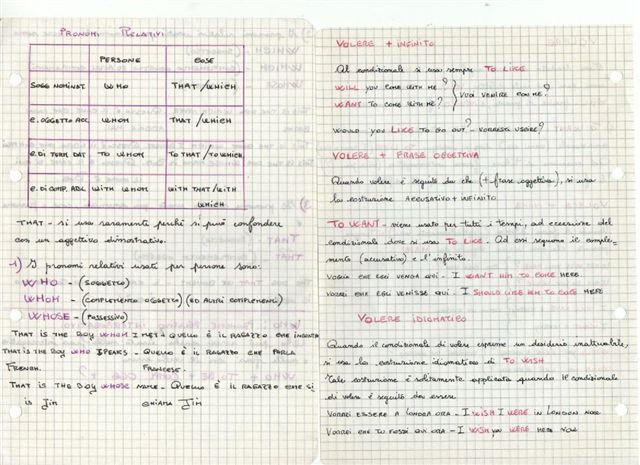 PRONOMI RELATIVI
PERSONE COSE
SOGG NOMINAT. WHO THAT / WHICH
C. OGGETTO ACC. WHOM THAT / WHICH
C. DI TERM DAT TO WHOM TO THAT / TO WHICH
C. DI COMP. ABL WITH WHOM WITH THAT / WITH
WHICH
THAT - si usa raramente perché si può confondere
con un aggettivo dimostrativo.
1) I pronomi relativi usati per persone sono:
WHO - (SOGGETTO)
WHOM - (COMPLEMENTO OGGETTO) (ED ALTRI COMPLEMENTI)
WHOSE - (POSSESSIVO)
THAT IS THE BOY WHOM I MET = QUELLO È IL RAGAZZO CHE
THAT IS THE BOY WHO SPEAKS - QUELLO È IL RAGAZZO CHE PARLA
FRENCH. FRANCESE.
THAT IS THE BOY WHOSE NAME - QUELLO È IL RAGAZZO CHE SI
IS JIM CHIAMA JIM
VOLERE + INFINITO
Al condizionale si usa sempre TO LIKE
WILL YOU COME WITH ME?
WANT TO COME WITH ME? VUOI VENIRE CON ME?
WOULD YOU LIKE TO GO OUT? - VORRESTI USCIRE?
VOLERE + FRASE OGGETTIVA
Quando volere è seguito da che (+ frase oggettiva), si usa
la costruzione ACCUSATIVO + INFINITO
TO WANT - viene usato per tutti i tempi, ad eccezione del
condizionale dove si usa TO LIKE. Ad essi seguono il comple-
mento (accusativo) e l'infinito.
VOGLIO CHE EGLI VENGA QUI - I WANT HIM TO COME HERE
VORREI CHE EGLI VENISSE QUI - I SHOULD LIKE HIM TO COME HERE
VOLERE IDIOMATICO
Quando il condizionale di volere esprime un desiderio inattuabile,
si usa la costruzione idiomatica di TO WISH
Tale costruzione è solitamente applicata quando il condizionale
di volere è seguito da essere
VORREI ESSERE A LONDRA ORA - I WISH I WERE IN LONDON NOW
VORREI CHE TU FOSSI QUI ORA - I WISH YOU WERE HERE NOW